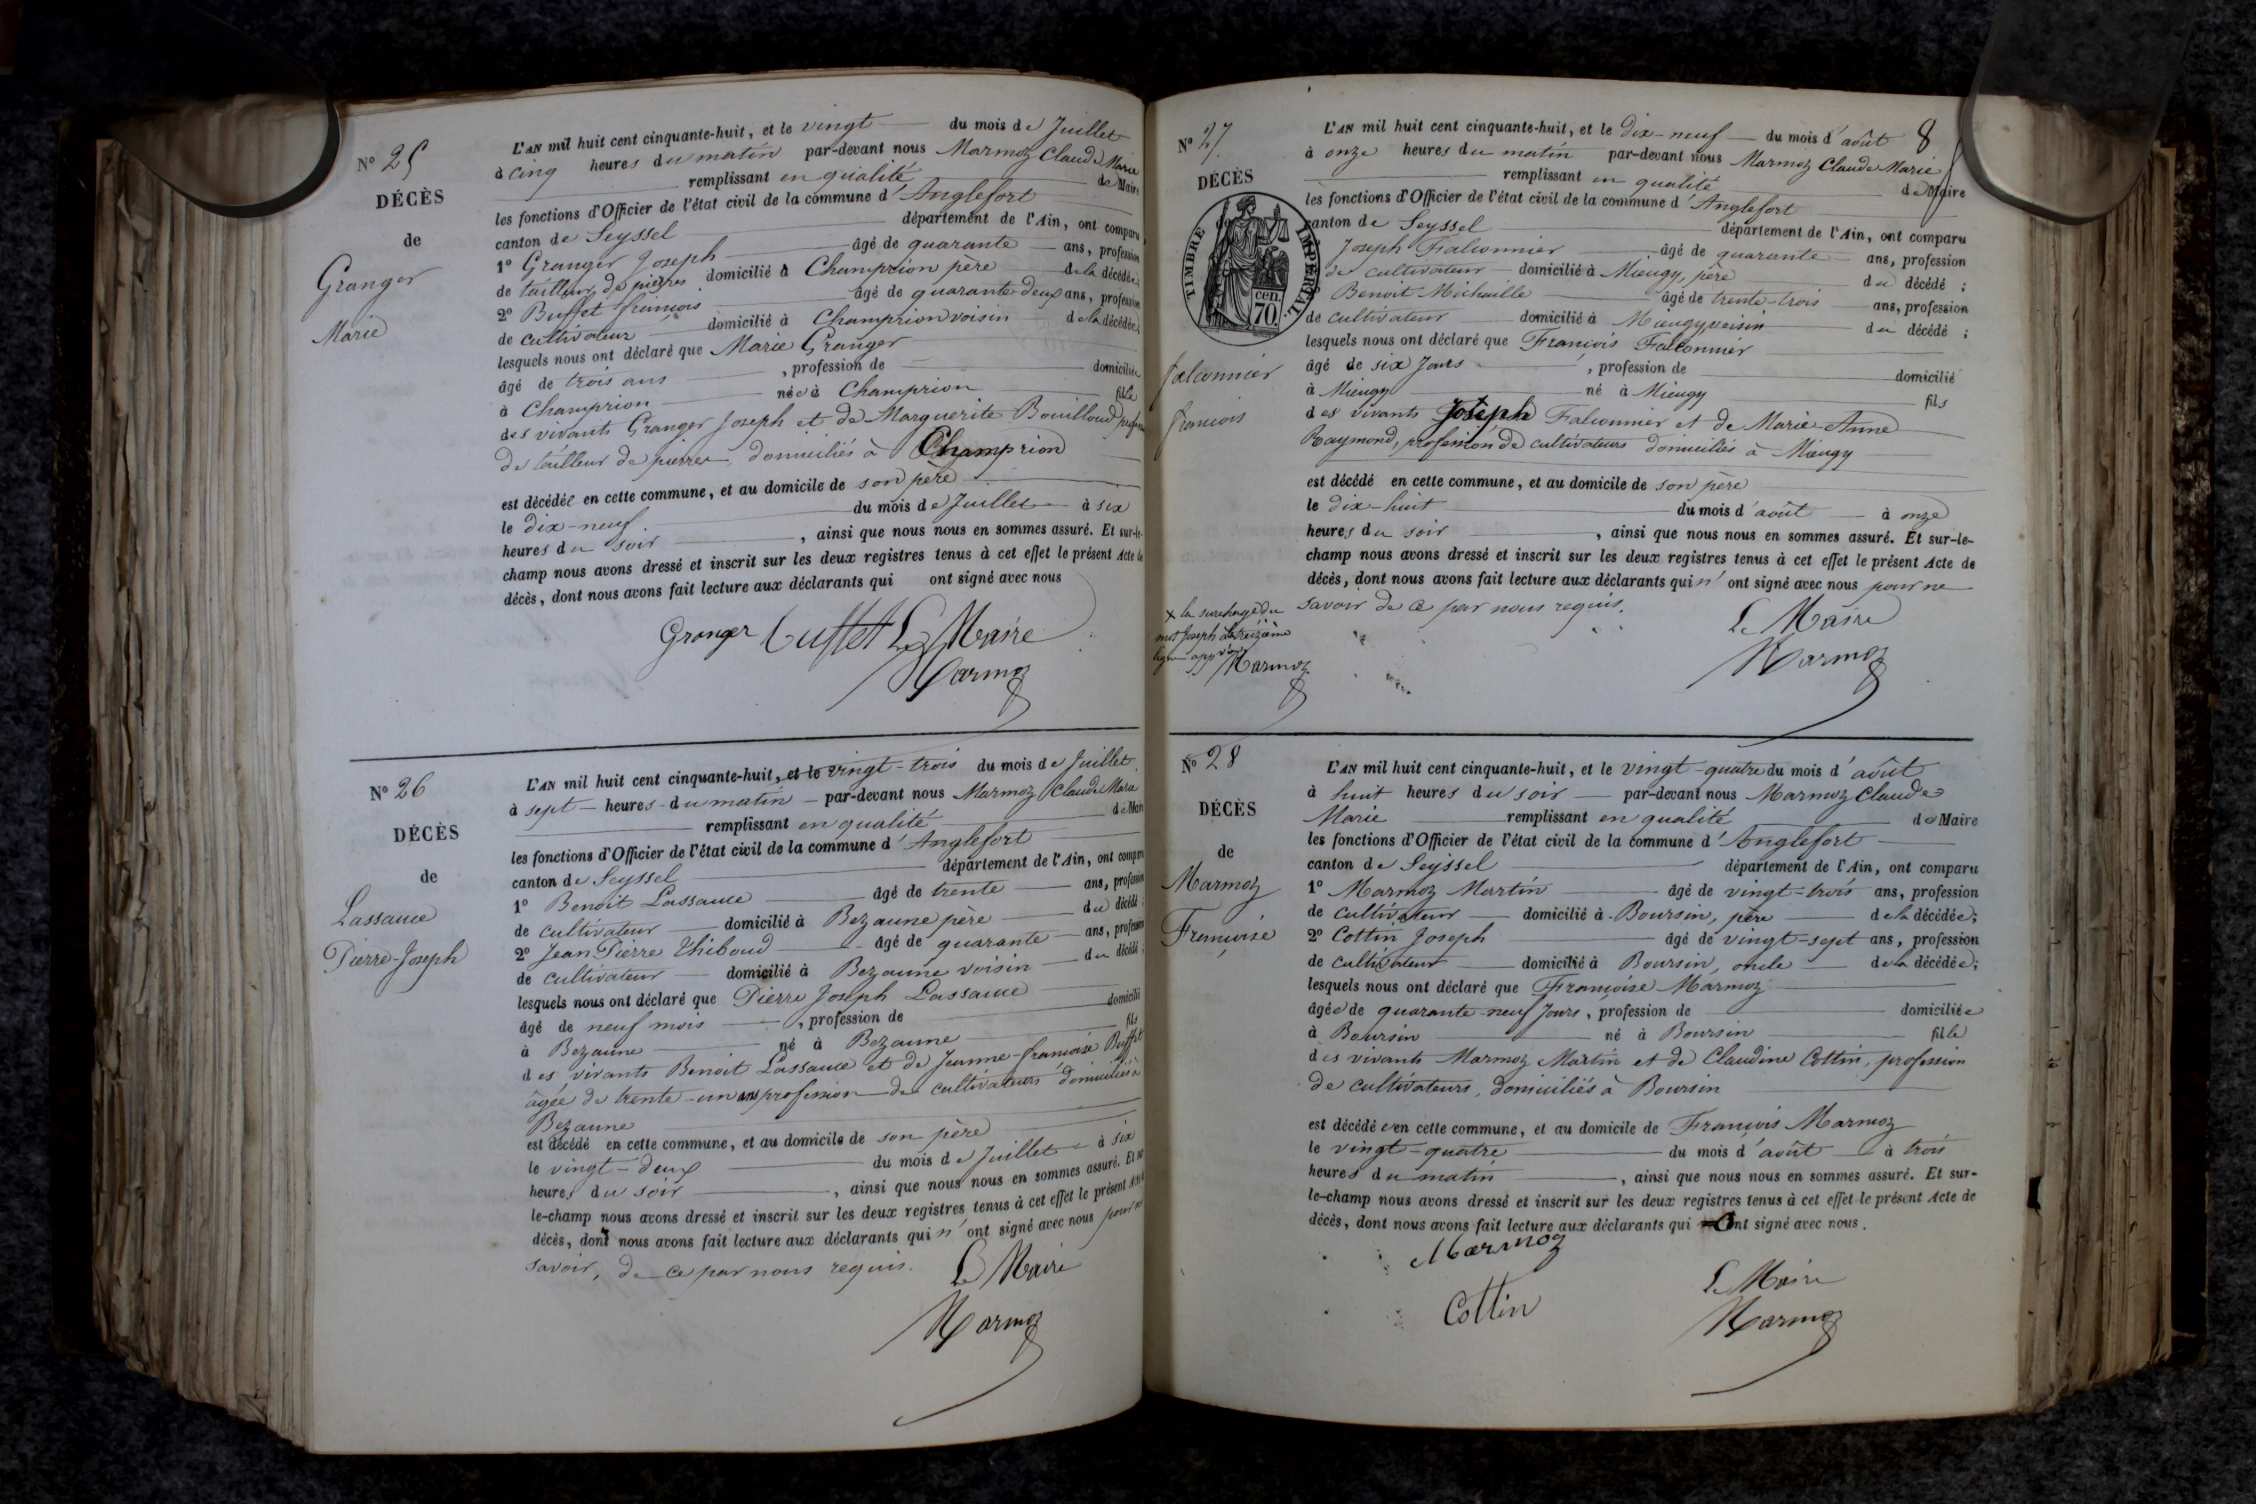 N° 25
DÉCÈS
de
Granger
Marie
L'AN mil huit cent cinquante-huit, et le vingt du mois de Juillet
à cinq heures du matin par-devant nous Marmoz Claude Marie
remplissant en qualité de Maire
les fonctions d'Officier de l'état civil de la commune d'Anglefort
canton de Seyssel département de l'Ain, ont comparu
1° Granger Joseph âgé de quarante ans, profession
de tailleur de pierres domicilié à Champrion père de la décédée;
2° Buffet françois âgé de quarante-deux ans, profession
de cultivateur domicilié à Champrion voisin de la décédée;
lesquels nous ont déclaré que Marie Granger
âgé de trois ans , profession de domiciliée
à Champrion née à Champrion fille
des vivants Granger Joseph et de Marguerite Bouilloud
de tailleur de pierres, domiciliés à Champrion
est décédée en cette commune, et au domicile de son père
le dix-neuf du mois de Juillet à six
heures du soir , ainsi que nous nous en sommes assuré. Et sur-le-
champ nous avons dressé et inscrit sur les deux registres tenus à cet effet le présent Acte de
décès, dont nous avons fait lecture aux déclarants qui ont signé avec nous
Granger Buffet Le Maire
Marmoz
N° 26
DÉCÈS
de
Lassauce
Pierre-Joseph
L'AN mil huit cent cinquante-huit, et le vingt-trois du mois de Juillet
à sept heures du matin par-devant nous Marmoz Claude Marie
remplissant en qualité de Maire
les fonctions d'Officier de l'état civil de la commune d'Anglefort
canton de Seyssel département de l'Ain, ont comparu
1° Benoit Lassauce âgé de trente ans, profession
de cultivateur domicilié à Bezaune père du décédé;
2° Jean Pierre Thiboud âgé de quarante ans, profession
de cultivateur domicilié à Bezaune voisin du décédé;
lesquels nous ont déclaré que Pierre Joseph Lassauce
âgé de neuf mois , profession de domicilié
à Bezaune né à Bezaune fils
des vivants Benoit Lassauce et de Jeanne-françoise Buffet
âgée de trente-un ans profession de cultivateurs domiciliés à
Bezaune
est décédé en cette commune, et au domicile de son père
le vingt-deux du mois de Juillet à six
heures du soir , ainsi que nous nous en sommes assuré. Et sur-
le-champ nous avons dressé et inscrit sur les deux registres tenus à cet effet le présent Acte de
décès, dont nous avons fait lecture aux déclarants qui n'ont signé avec nous pour ne
savoir, de ce par nous requis.
Le Maire
Marmoz
8
N° 27
DÉCÈS
de
TIMBRE IMPÉRIAL
70 cen.
falconnier
françois
L'AN mil huit cent cinquante-huit, et le dix-neuf du mois d'août
à onze heures du matin par-devant nous Marmoz Claude Marie
remplissant en qualité de Maire
les fonctions d'Officier de l'état civil de la commune d'Anglefort
canton de Seyssel département de l'Ain, ont comparu
Joseph Falconnier âgé de quarante ans, profession
de cultivateur domicilié à Mieugy, père du décédé;
Benoit Michaille âgé de trente-trois ans, profession
de cultivateur domicilié à Mieugy voisin du décédé;
lesquels nous ont déclaré que François Falconnier
âgé de six Jours , profession de domicilié
à Mieugy né à Mieugy fils
des vivants Joseph Falconnier et de Marie-Anne
Raymond, profession de cultivateurs domiciliés à Mieugy
est décédé en cette commune, et au domicile de son père
le dix-huit du mois d'août à onze
heures du soir , ainsi que nous nous en sommes assuré. Et sur-le-
champ nous avons dressé et inscrit sur les deux registres tenus à cet effet le présent Acte de
décès, dont nous avons fait lecture aux déclarants qui n'ont signé avec nous pour ne
savoir de ce par nous requis.
Le Maire
Marmoz
x la surcharge du
mot Joseph à la treizième
ligne appvée
Marmoz
N° 28
DÉCÈS
de
Marmoz
Françoise
L'AN mil huit cent cinquante-huit, et le vingt-quatre du mois d'août
à huit heures du soir par-devant nous Marmoz Claude
Marie remplissant en qualité de Maire
les fonctions d'Officier de l'état civil de la commune d'Anglefort
canton de Seyssel département de l'Ain, ont comparu
1° Marmoz Martin âgé de vingt-trois ans, profession
de cultivateur domicilié à Boursin, père de la décédée;
2° Cottin Joseph âgé de vingt-sept ans, profession
de cultivateur domicilié à Boursin, oncle de la décédée;
lesquels nous ont déclaré que Françoise Marmoz
âgée de quarante-neuf Jours, profession de domiciliée
à Boursin né à Boursin fille
des vivants Marmoz Martin et de Claudine Cottin, profession
de cultivateurs, domiciliés à Boursin
est décédée en cette commune, et au domicile de François Marmoz
le vingt-quatre du mois d'août à trois
heures du matin , ainsi que nous nous en sommes assuré. Et sur-
le-champ nous avons dressé et inscrit sur les deux registres tenus à cet effet le présent Acte de
décès, dont nous avons fait lecture aux déclarants qui ont signé avec nous.
Marmoz
Cottin
Le Maire
Marmoz